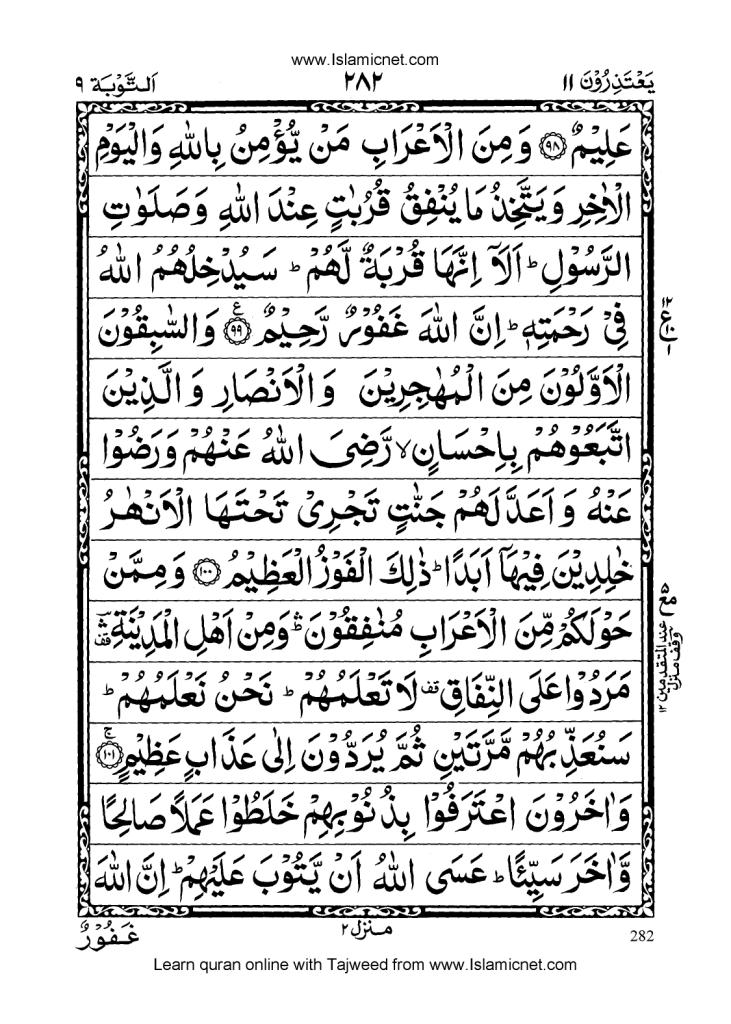 www.Islamicnet.com
يَعْتَذِرُوْنَ ١١
٢٨٢
اَلتَّوْبَة ٩
عَلِيْمٌ ﴿٩٨﴾ وَمِنَ الْاَعْرَابِ مَنْ يُّؤْمِنُ بِاللّٰهِ وَالْيَوْمِ
الْاٰخِرِ وَيَتَّخِذُ مَا يُنْفِقُ قُرُبٰتٍ عِنْدَ اللّٰهِ وَصَلَوٰتِ
الرَّسُوْلِ ؕ اَلَاۤ اِنَّهَا قُرْبَةٌ لَّهُمْ ؕ سَيُدْخِلُهُمُ اللّٰهُ
فِيْ رَحْمَتِهٖ ؕ اِنَّ اللّٰهَ غَفُوْرٌ رَّحِيْمٌ ﴿٩٩﴾ ع وَالسّٰبِقُوْنَ
الْاَوَّلُوْنَ مِنَ الْمُهٰجِرِيْنَ وَالْاَنْصَارِ وَالَّذِيْنَ
اتَّبَعُوْهُمْ بِاِحْسَانٍ ۙ رَّضِيَ اللّٰهُ عَنْهُمْ وَرَضُوْا
عَنْهُ وَاَعَدَّ لَهُمْ جَنّٰتٍ تَجْرِيْ تَحْتَهَا الْاَنْهٰرُ
خٰلِدِيْنَ فِيْهَاۤ اَبَدًا ؕ ذٰلِكَ الْفَوْزُ الْعَظِيْمُ ﴿١٠٠﴾ وَمِمَّنْ
حَوْلَكُمْ مِّنَ الْاَعْرَابِ مُنٰفِقُوْنَ ۛؕ وَمِنْ اَهْلِ الْمَدِيْنَةِ ۛؔ قف
مَرَدُوْا عَلَى النِّفَاقِ قف لَا تَعْلَمُهُمْ ؕ نَحْنُ نَعْلَمُهُمْ ؕ
سَنُعَذِّبُهُمْ مَّرَّتَيْنِ ثُمَّ يُرَدُّوْنَ اِلٰى عَذَابٍ عَظِيْمٍ ﴿١٠١﴾ ج
وَاٰخَرُوْنَ اعْتَرَفُوْا بِذُنُوْبِهِمْ خَلَطُوْا عَمَلًا صَالِحًا
وَّاٰخَرَ سَيِّئًا ؕ عَسَى اللّٰهُ اَنْ يَّتُوْبَ عَلَيْهِمْ ؕ اِنَّ اللّٰهَ
١٢
ع
١٠
١
مع ٥
عند المتقدمين ١٢
وقف منزل
282
منزل ٢
غَفُوْرٌ
Learn quran online with Tajweed from www.Islamicnet.com